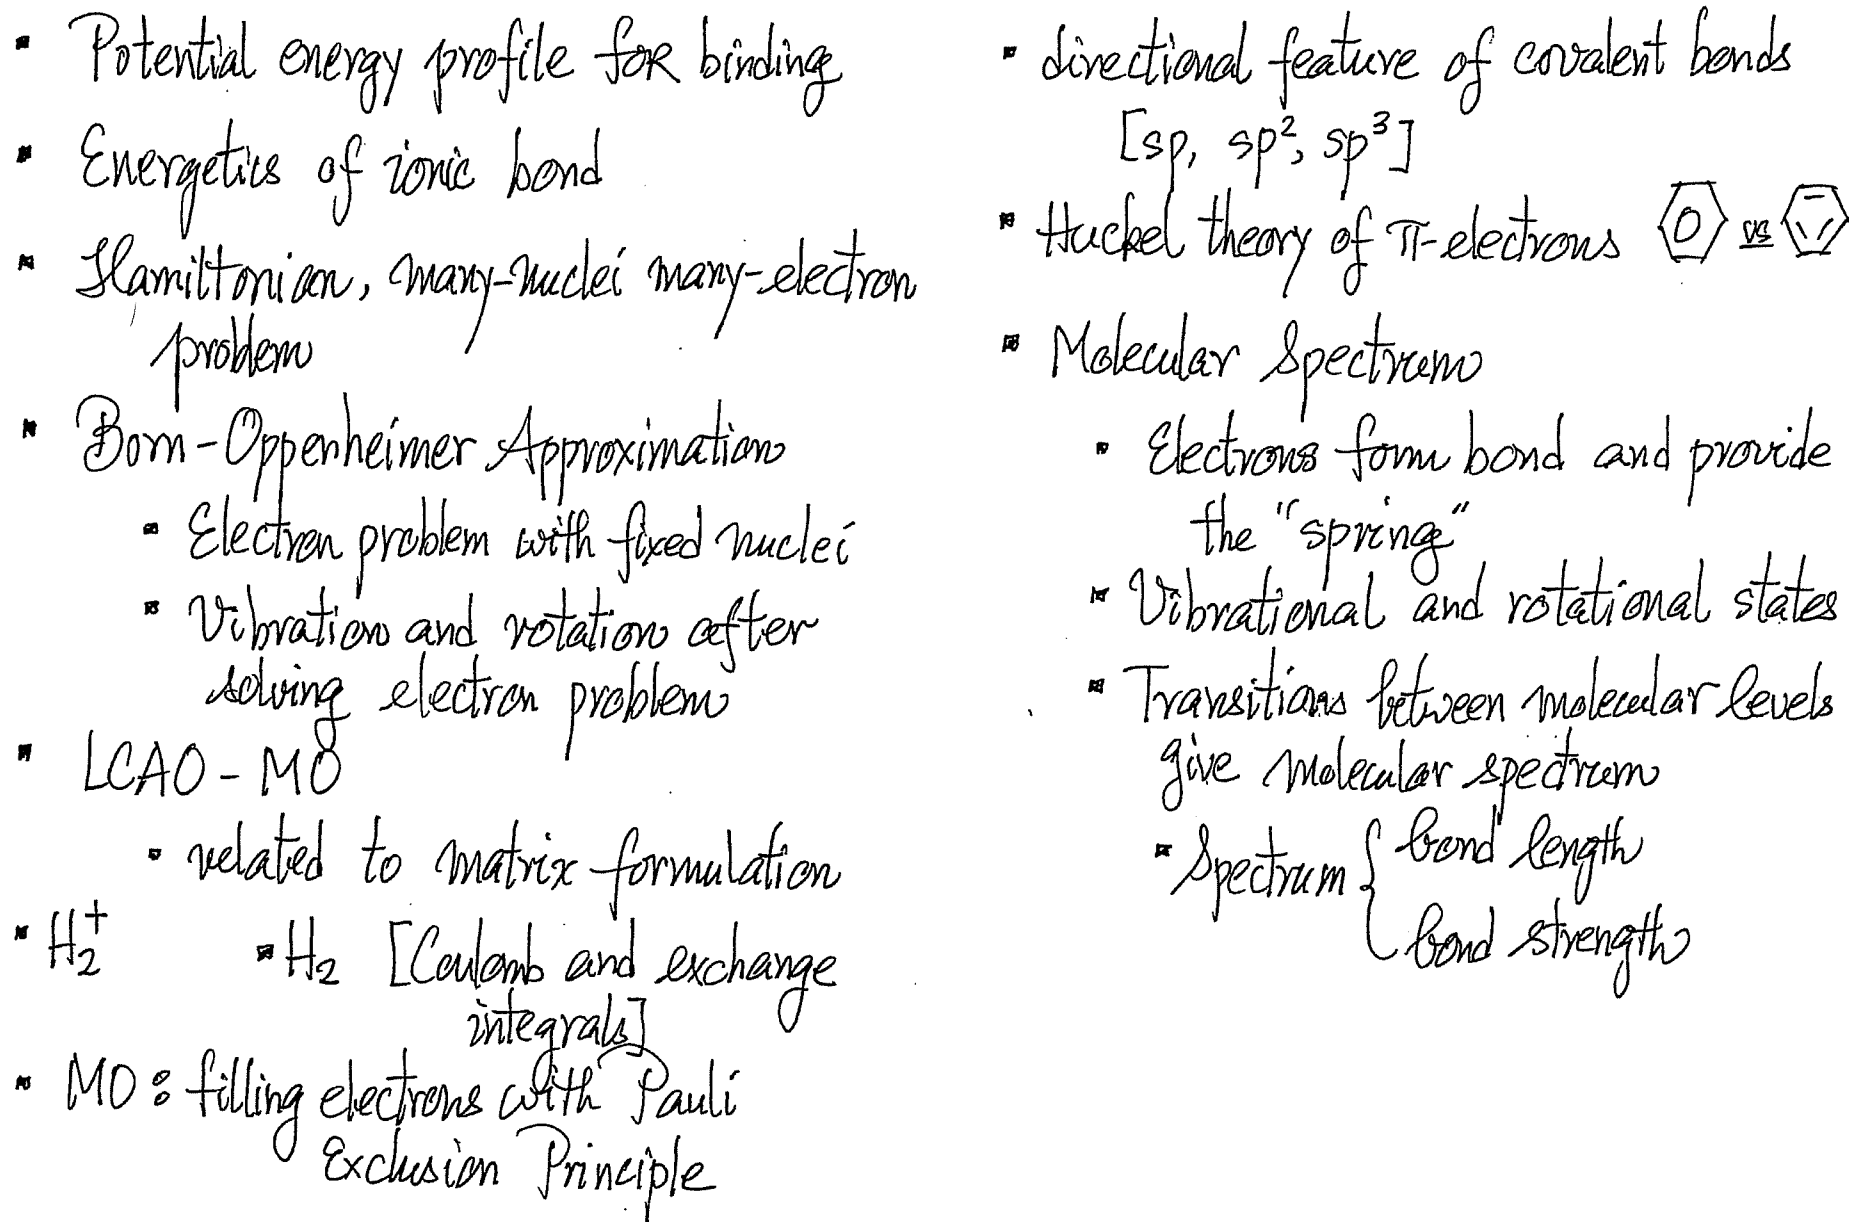 ▪ Potential energy profile for binding
▪ Energetics of ionic bond
▪ Hamiltonian, many-nuclei many-electron
problem
▪ Born-Oppenheimer Approximation
▪ Electron problem with fixed nuclei
▪ Vibration and rotation after
solving electron problem
▪ LCAO - MO
▪ related to matrix formulation
▪ H₂⁺ ▪ H₂ [Coulomb and exchange
integrals]
▪ MO: filling electrons with Pauli
Exclusion Principle
▪ directional feature of covalent bonds
[sp, sp², sp³]
▪ Huckel theory of π-electrons vs
▪ Molecular Spectrum
▪ Electrons form bond and provide
the "spring"
▪ Vibrational and rotational states
▪ Transitions between molecular levels
give molecular spectrum
▪ Spectrum { bond length
bond strength